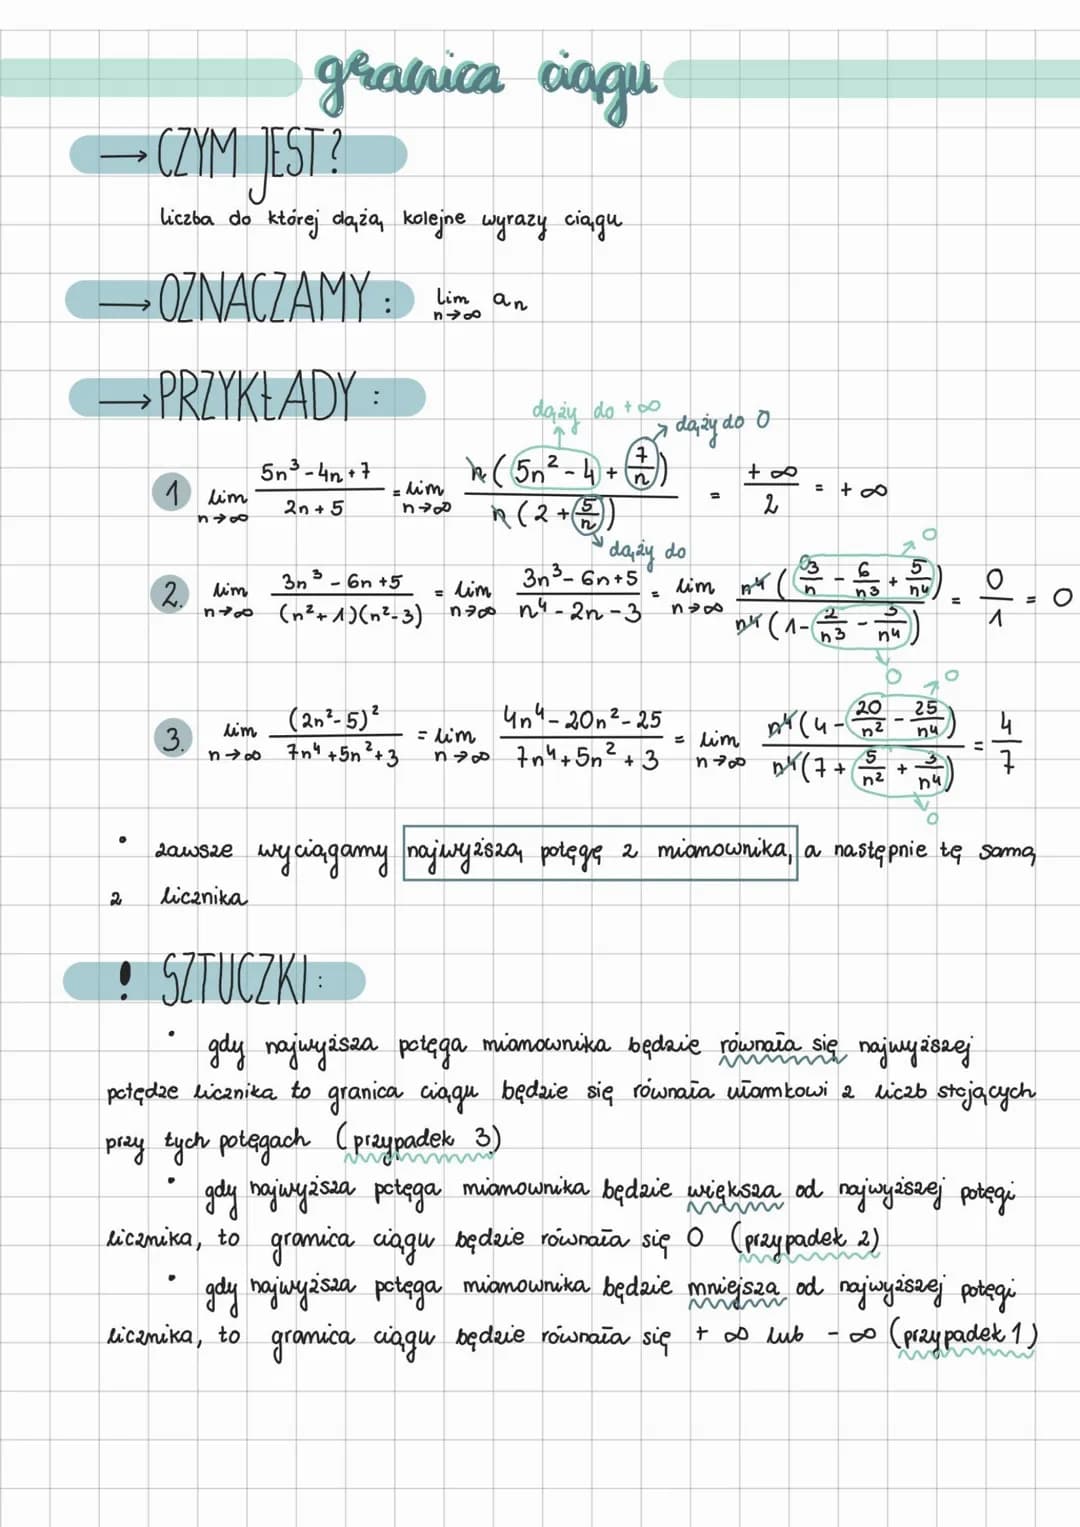 granica ciągu
→ CZYM JEST?
liczba do której dążą kolejne wyrazy ciągu
→ OZNACZAMY: lim n→∞ an
→ PRZYKŁADY:
dąży do +∞
dąży do 0
1 lim n→∞ (5n³-4n+7)/(2n+5) = lim n→∞ n(5n²-4+7/n)/n(2+5/n) = +∞/2 = +∞
dąży do
2. lim n→∞ (3n³-6n+5)/((n²+1)(n²-3)) = lim n→∞ (3n³-6n+5)/(n⁴-2n-3) = lim n→∞ n⁴(3/n - 6/n³ + 5/n⁴)/n⁴(1-2/n³-3/n⁴) = 0/1 = 0
0
0
0
3. lim n→∞ (2n²-5)²/(7n⁴+5n²+3) = lim n→∞ (4n⁴-20n²-25)/(7n⁴+5n²+3) = lim n→∞ n⁴(4-20/n²-25/n⁴)/n⁴(7+5/n²+3/n⁴) = 4/7
0
0
• zawsze wyciągamy najwyższą potęgę z mianownika, a następnie tę samą
z licznika
! SZTUCZKI:
• gdy najwyższa potęga mianownika będzie równała się najwyższej
potędze licznika to granica ciągu będzie się równała ułamkowi z liczb stojących
przy tych potęgach (przypadek 3)
• gdy najwyższa potęga mianownika będzie większa od najwyższej potęgi
licznika, to granica ciągu będzie równała się 0 (przypadek 2)
• gdy najwyższa potęga mianownika będzie mniejsza od najwyższej potęgi
licznika, to granica ciągu będzie równała się +∞ lub -∞ (przypadek 1)